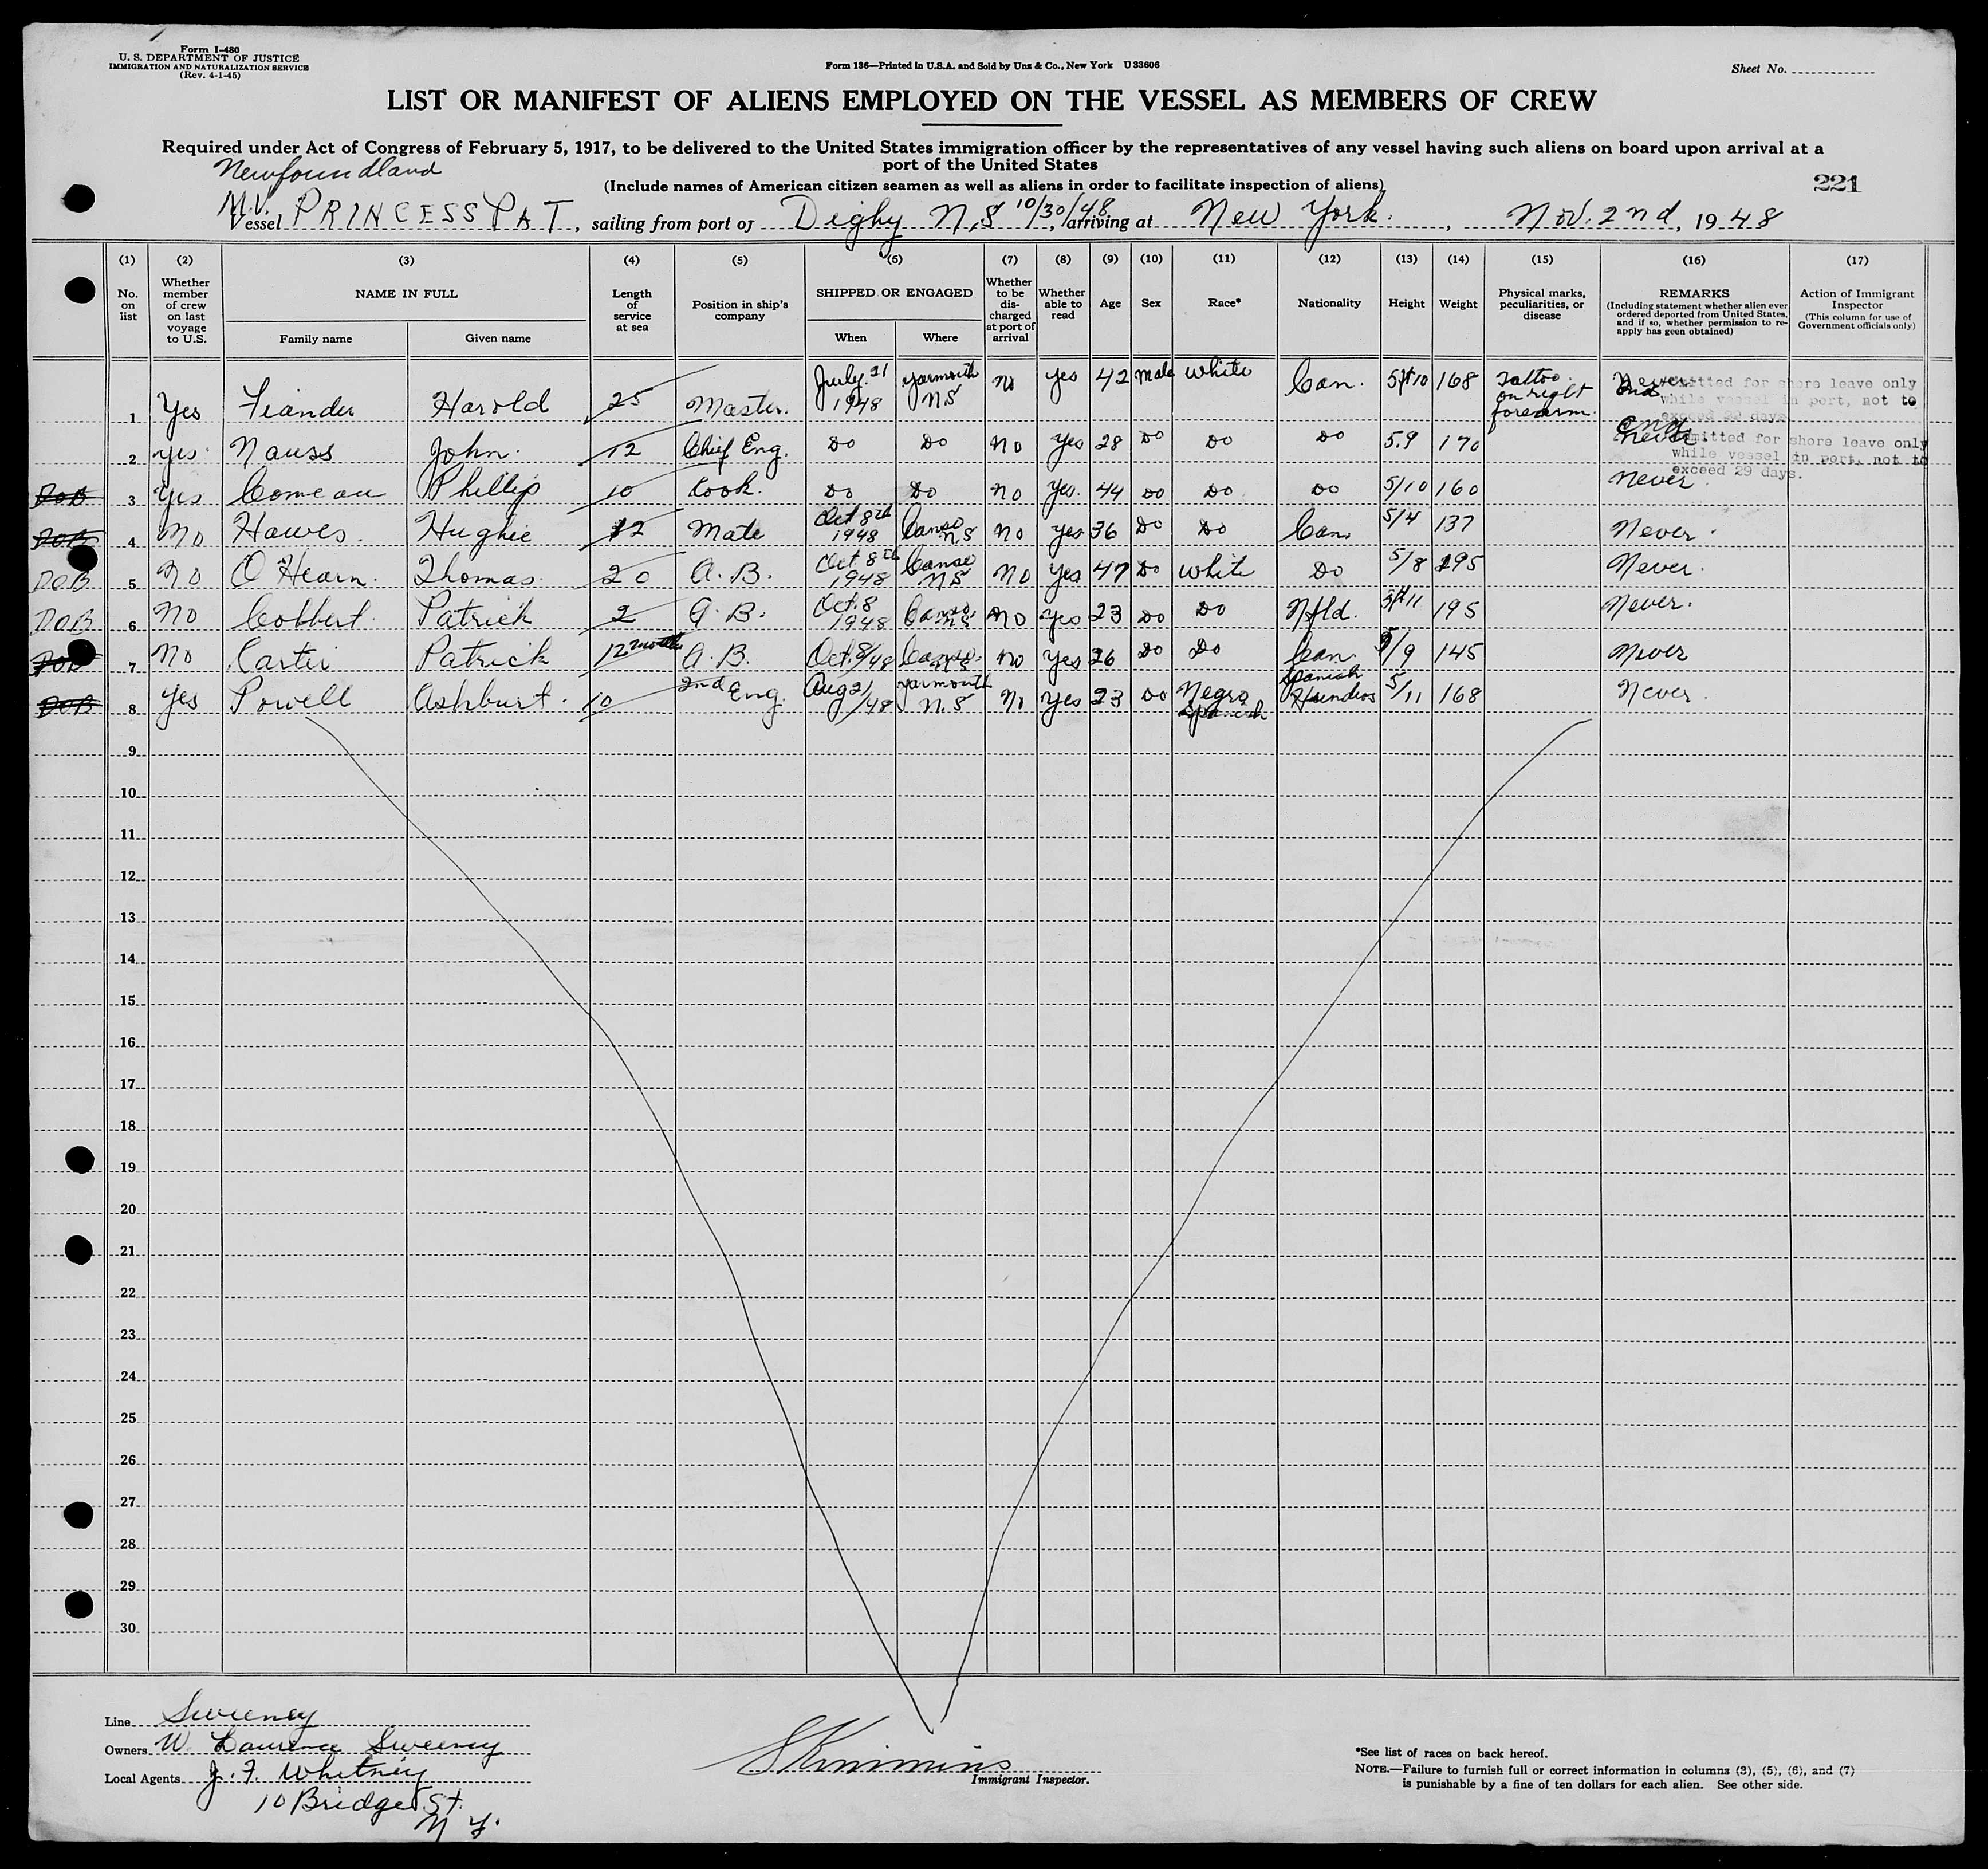 Form I-480
U. S. DEPARTMENT OF JUSTICE
IMMIGRATION AND NATURALIZATION SERVICE
(Rev. 4-1-45)
Form 136—Printed in U.S.A. and Sold by Unz & Co., New York U 33606
Sheet No.
LIST OR MANIFEST OF ALIENS EMPLOYED ON THE VESSEL AS MEMBERS OF CREW
Required under Act of Congress of February 5, 1917, to be delivered to the United States immigration officer by the representatives of any vessel having such aliens on board upon arrival at a
port of the United States
Newfoundland
(Include names of American citizen seamen as well as aliens in order to facilitate inspection of aliens)
221
M.V.
Vessel PRINCESS PAT, sailing from port of Digby N.S 10/30/48, arriving at New York., Nov. 2nd, 1948
(1) (2) (3) (4) (5) (6) (7) (8) (9) (10) (11) (12) (13) (14) (15) (16) (17)
No. on list
Whether member of crew on last voyage to U.S.
NAME IN FULL
Family name Given name
Length of service at sea
Position in ship's company
SHIPPED OR ENGAGED
When Where
Whether to be discharged at port of arrival
Whether able to read
Age
Sex
Race*
Nationality
Height
Weight
Physical marks, peculiarities, or disease
REMARKS
(Including statement whether alien ever ordered deported from United States, and if so, whether permission to re-apply has geen obtained)
Action of Immigrant Inspector
(This column for use of Government officials only)
1 Yes Harold 25 Master. July 21 1948 Yarmouth NS No Yes 42 Male White Can. 5 ft 10 168 Tattoo on right forearm.
Admitted for shore leave only
while vessel in port, not to
exceed 29 days
2 Yes. Nauss John. 12 Chief Eng. Do Do No Yes 28 Do Do Do 5.9 170 Never
Admitted for shore leave only
while vessel in port, not to
exceed 29 days.
DOB 3 Yes Comeau Phillip 10 Cook. Do Do No Yes. 44 Do Do Do 5/10 160 Never
DOB 4 No Hawes. Hughie 12 Mate Oct 8th 1948 Canso N.S No Yes 36 Do Do Can 5/4 137 Never.
DOB 5 No O'Hearn. Thomas. 20 A.B. Oct 8th 1948 Canso NS No Yes 47 Do White Do 5/8 195 Never.
DOB 6 No Colbert. Patrick 2 A.B. Oct. 8 1948 Canso NS No Yes 23 Do Do Nfld. 5ft 11 195 Never.
DOB 7 No Carter Patrick 12 months A.B. Oct. 8/48 Canso. N.S No Yes 26 Do Do Can. 5/9 145 Never
DOB 8 Yes Powell Ashburt. 10 2nd Eng. Aug 21/48 Yarmouth N.S No Yes 23 Do Negro Spanish Spanish Hundros 5/11 168 Never.
9
10
11
12
13
14
15
16
17
18
19
20
21
22
23
24
25
26
27
28
29
30
Line Sweeney
Owners W. Laurence Sweeney
Local Agents J. F. Whitney
10 Bridge St.
N Y.
Immigrant Inspector.
*See list of races on back hereof.
NOTE.—Failure to furnish full or correct information in columns (3), (5), (6), and (7)
is punishable by a fine of ten dollars for each alien. See other side.